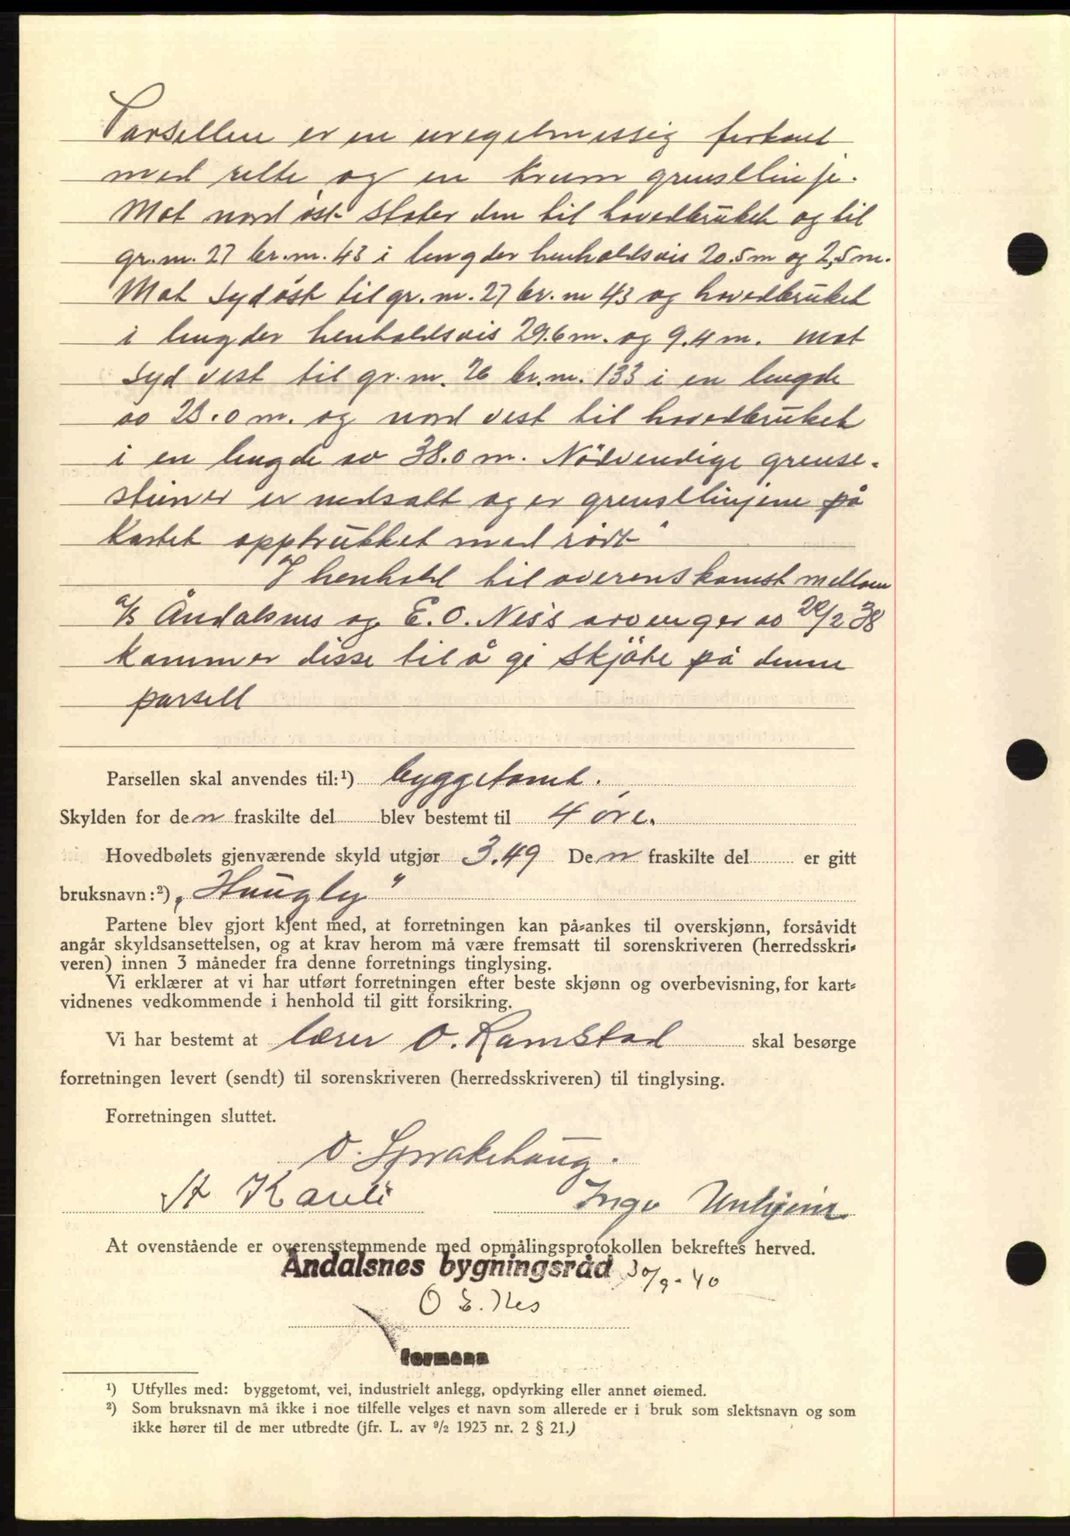 Parsellen er en uregelmessig firkant
med rette og en krum grenselinje.
Mot nord øst støter den til hovedbruket og til
gr.nr. 27 br.nr. 43 i lengder henholdsvis 20.5m og 2,5m.
Mot syd øst til gr.nr. 27 br.nr 43 og hovedbruket
i lengder henholdsvis 29.6m. og 9.4m. mot
syd vest til gr.nr. 26 br.nr. 133 i en lengde
av 23.0m. og nord vest til hovedbruket
i en lengde av 38.0m. Nödvendige grense-
steiner er nedsatt og er grenselinjene på
kartet opptrukket med rödt"
I henhold til overenskomst mellom
a/s Åndalsnes og E.O. Nes's arvinger av 22/2 38
kommer disse til å gi skjöte på denne
parsell
Parsellen skal anvendes til:¹) byggetomt.
Skylden for den fraskilte del blev bestemt til 4 øre.
Hovedbølets gjenværende skyld utgjør 3.49 Den fraskilte del er gitt
bruksnavn:²) „Haugly"
Partene blev gjort kjent med, at forretningen kan på-ankes til overskjønn, forsåvidt
angår skyldsansettelsen, og at krav herom må være fremsatt til sorenskriveren (herredsskri-
veren) innen 3 måneder fra denne forretnings tinglysing.
Vi erklærer at vi har utført forretningen efter beste skjønn og overbevisning, for kart-
vidnenes vedkommende i henhold til gitt forsikring.
Vi har bestemt at lærer O. Ramstad skal besørge
forretningen levert (sendt) til sorenskriveren (herredsskriveren) til tinglysing.
Forretningen sluttet.
O. Sprakehaug.
A Kavli Inge Unhjem
At ovenstående er overensstemmende med opmålingsprotokollen bekreftes herved.
Åndalsnes bygningsråd 30/9-40
O E. Nes
formann
¹) Utfylles med: byggetomt, vei, industrielt anlegg, opdyrking eller annet øiemed.
²) Som bruksnavn må ikke i noe tilfelle velges et navn som allerede er i bruk som slektsnavn og som
ikke hører til de mer utbredte (jfr. L. av ⁹/₂ 1923 nr. 2 § 21.)